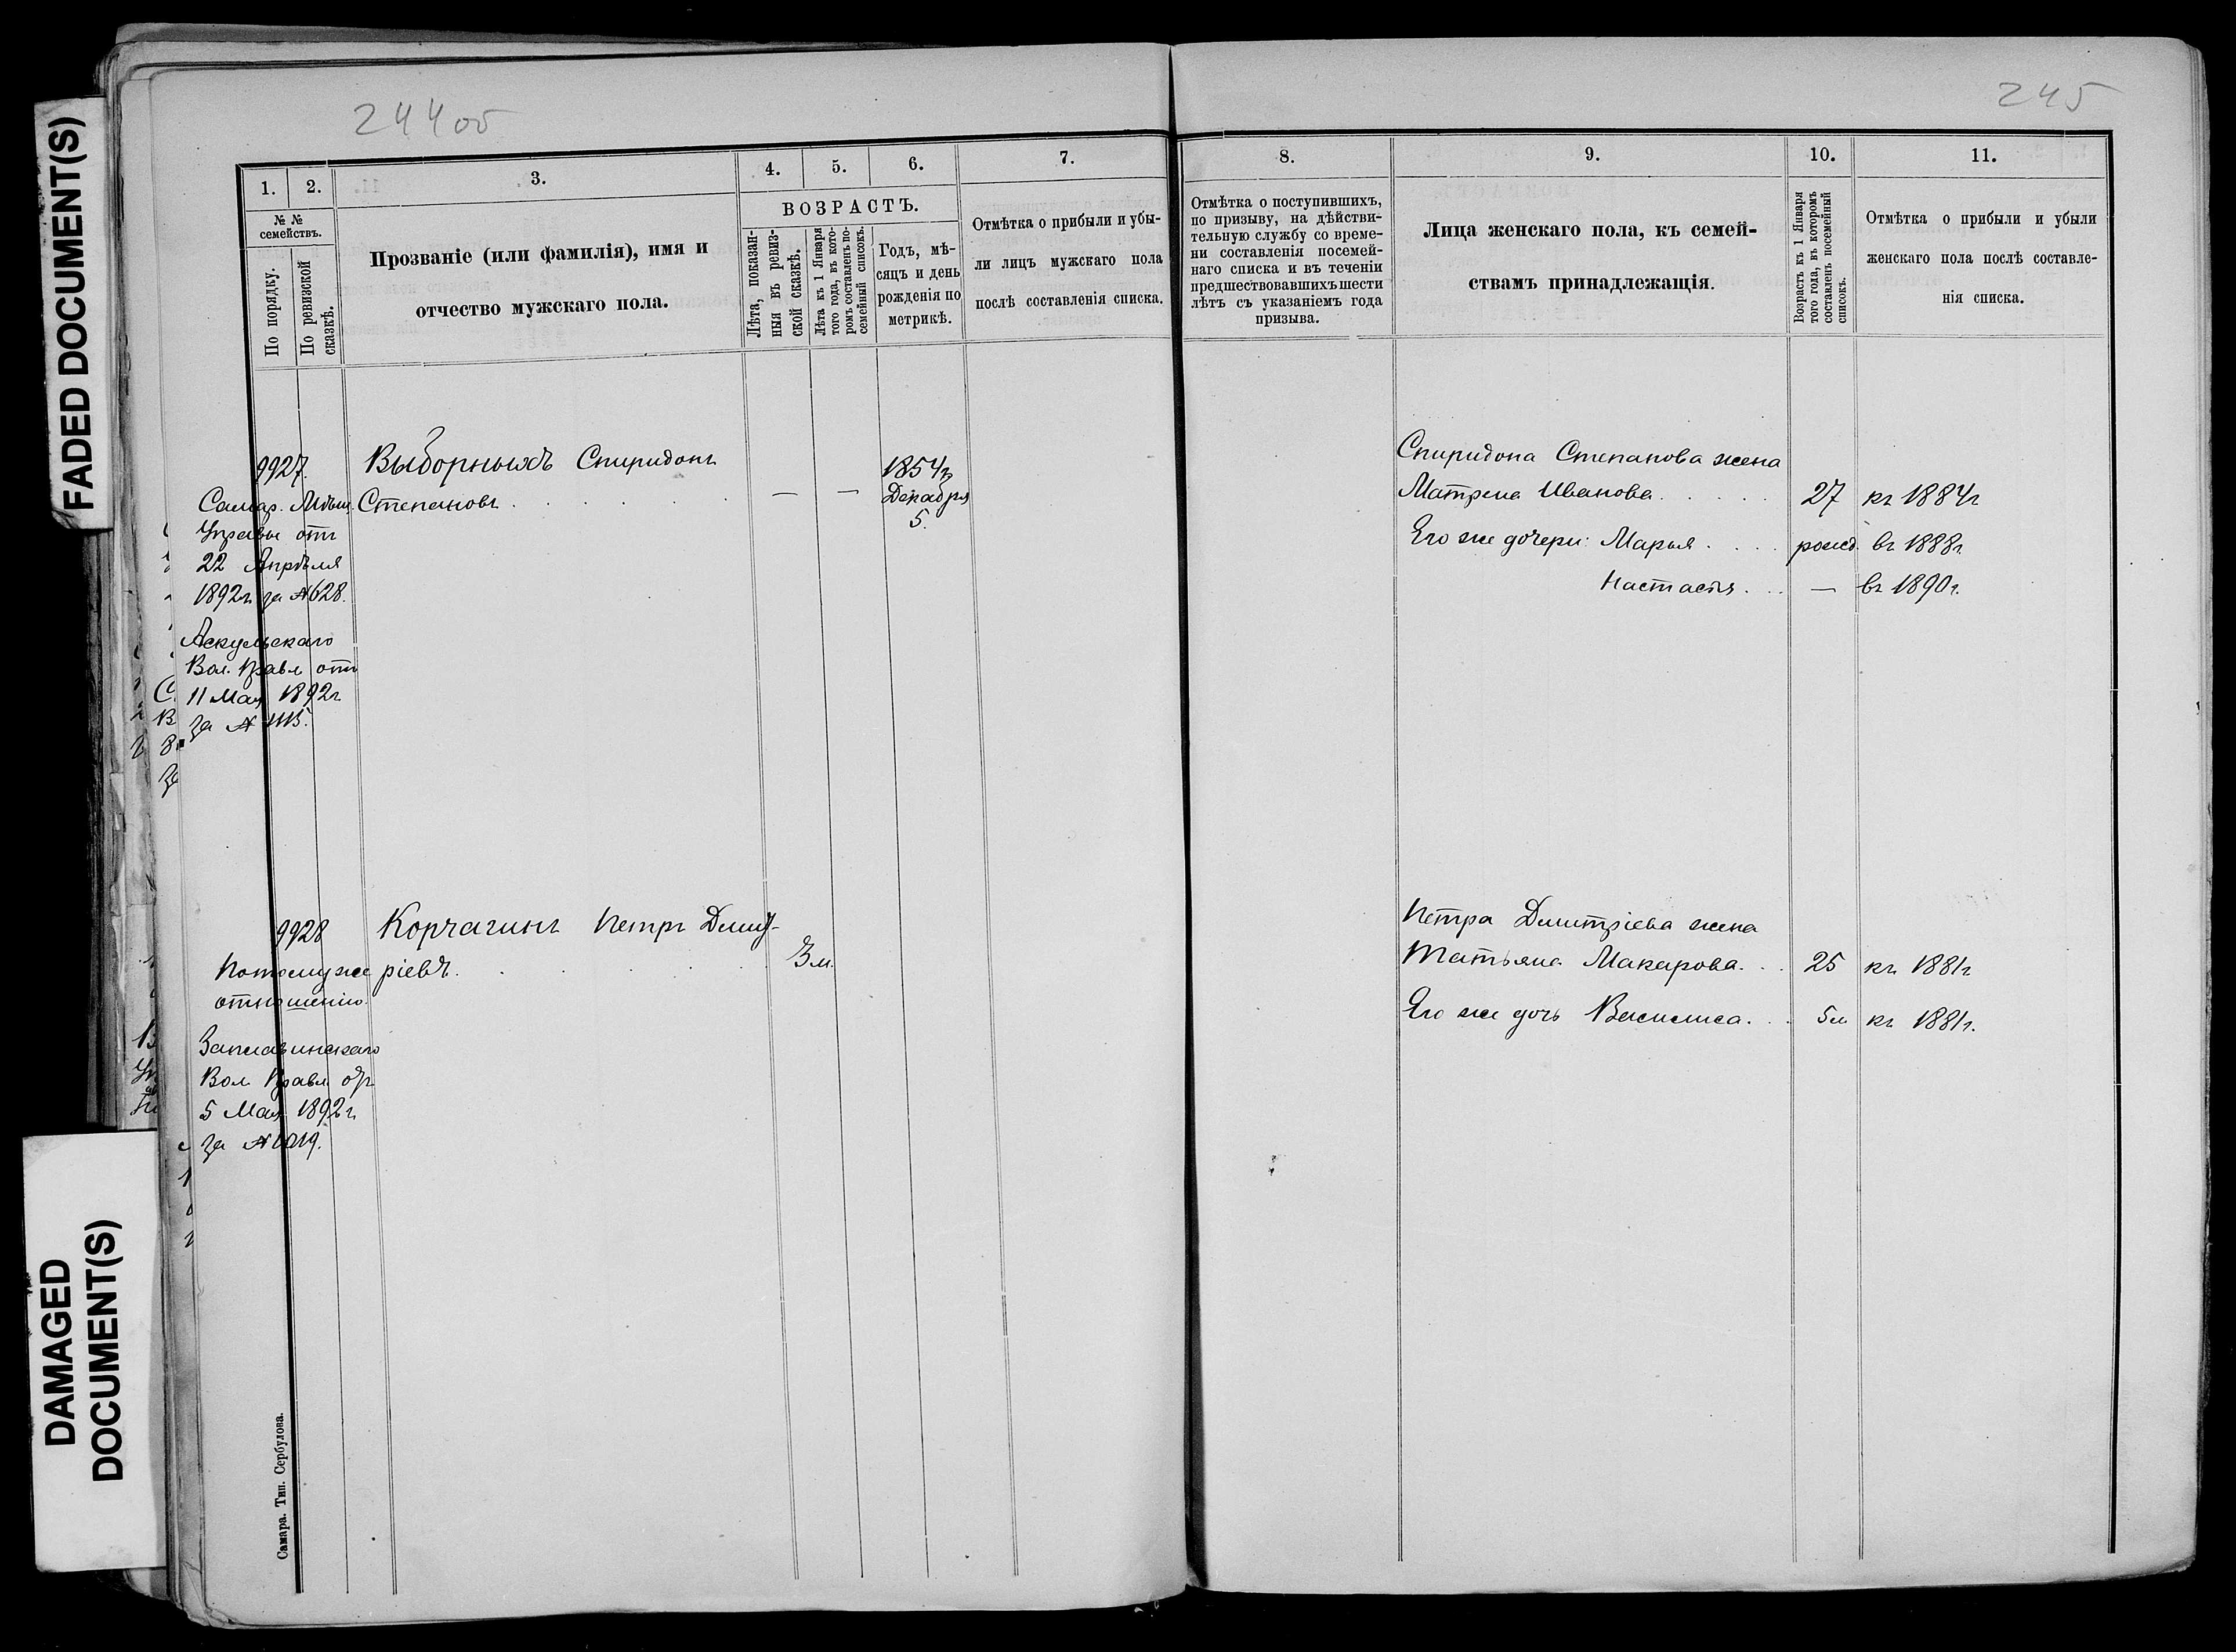 FADED DOCUMENT(S)
DAMAGED
DOCUMENT(S)
244об
1.
2.
3.
4.
5.
6.
7.
№ №
семействъ.
По порядку.
По ревизской
сказкѣ.
Прозваніе (или фамилія), имя и
отчество мужскаго пола.
ВОЗРАСТЪ.
Лѣта, показан-
ныя въ ревиз-
ской сказкѣ.
Лѣта къ 1 Января
того года, въ кото-
ромъ составленъ по-
семейный списокъ.
Годъ, мѣ-
сяцъ и день
рожденія по
метрикѣ.
Отмѣтка о прибыли и убы-
ли лицъ мужскаго пола
послѣ составленія списка.
9927.
Выборныхъ Спиридонъ
Степановъ
— —
1854г
Декабря
5.
Самар. Мѣщ.
Управы отъ
22 Апрѣля
1892г за № 628.
Аскульскаго
Вол. Правл отъ
11 Мая 1892г
за № 1115.
9928
Корчагинъ Петръ Дмит-
ріевъ.
3м.
Потомуже
отношенію.
Заплавинскаго
Вол. Правл. отъ
5 Мая 1892г
за № 1019.
Самара. Тип. Сербулова.
245
8.
9.
10.
11.
Отмѣтка о поступившихъ,
по призыву, на дѣйстви-
тельную службу со време-
ни составленія посемей-
наго списка и въ теченіи
предшествовавшихъ шести
лѣтъ съ указаніемъ года
призыва.
Лица женскаго пола, къ семей-
ствамъ принадлежащія.
Возрастъ къ 1 Января
того года, въ которомъ
составленъ посемейный
списокъ.
Отмѣтка о прибыли и убыли
женскаго пола послѣ составле-
нія списка.
Спиридона Степанова жена
Матрена Иванова. 27 къ 1884г
Его же дочери: Марья рожд. въ 1888г
Настасья — въ 1890г.
Петра Дмитріева жена
Татьяна Макарова. 25 къ 1881г
Его же дочь Василиса. 5м къ 1881г.